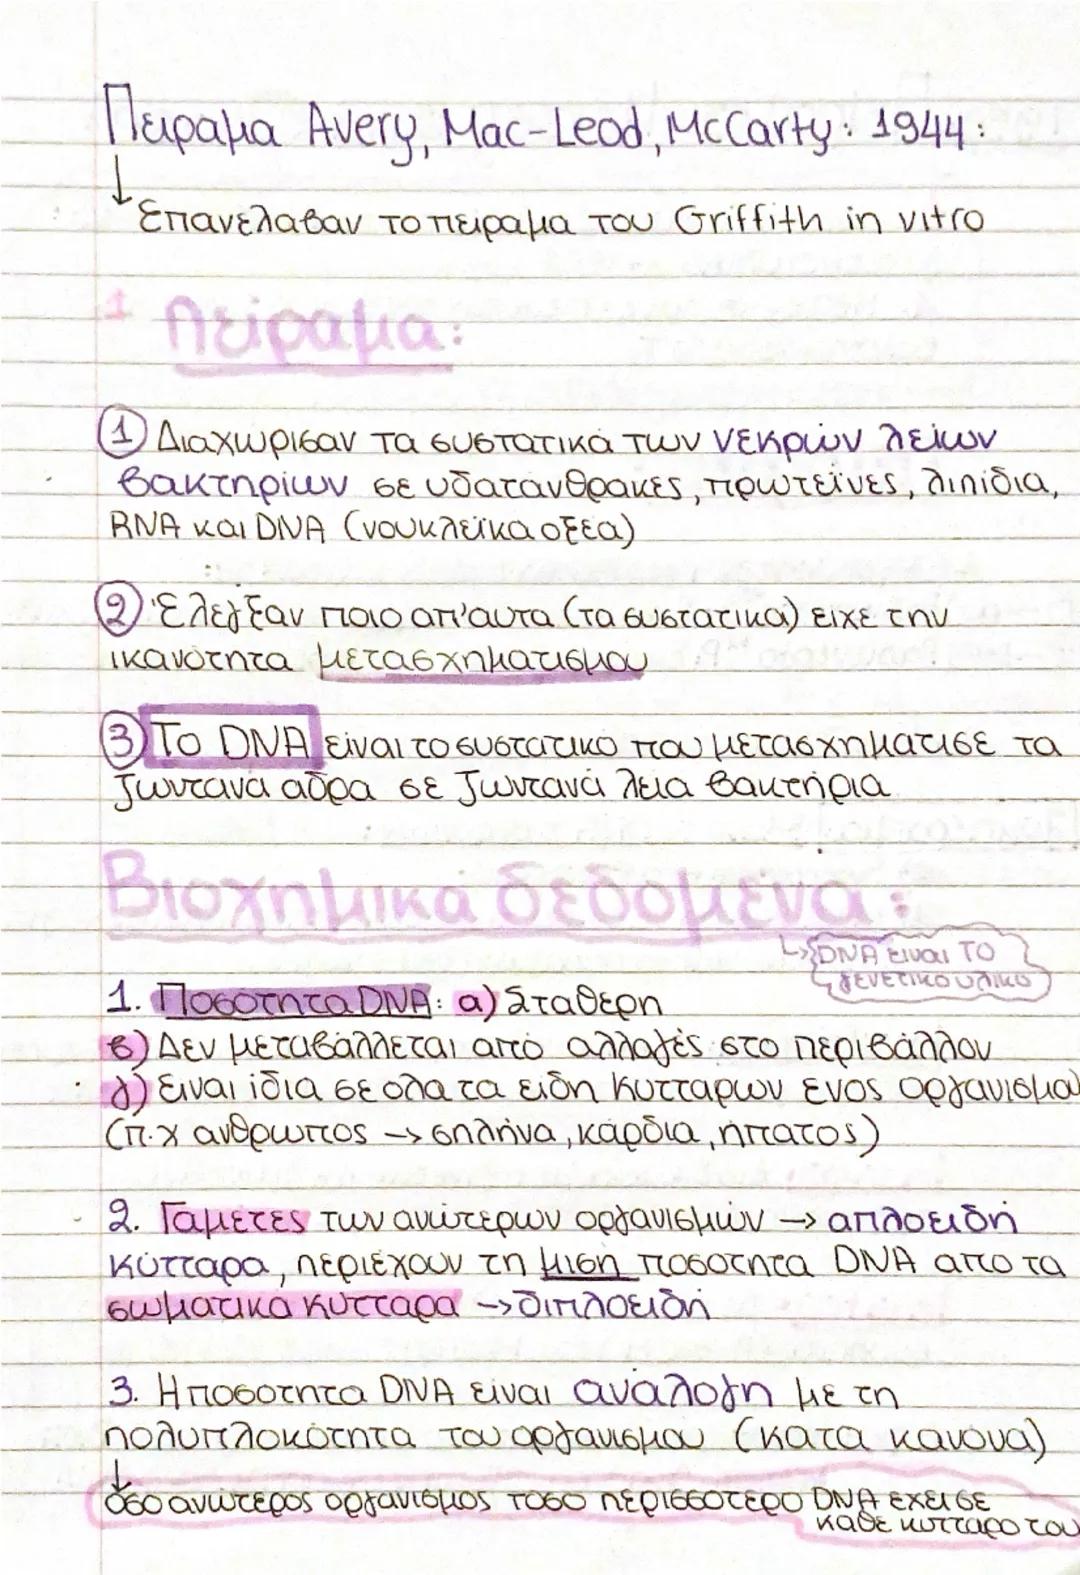 Πειραμα Avery, Mac-Leod, McCarty: 1944:
↓
Επανέλαβαν το πειραμα του Griffith in vitro
1 Πείραμα:
① Διαχώρισαν τα συστατικά των νεκρών λείων
βακτηρίων σε υδατάνθρακες, πρωτεϊνες, λιπίδια,
RNA και DNA (νουκλεϊκα οξεα)
② Έλεγξαν ποιο απ'αυτα (τα συστατικα) ειχε την
ικανότητα μετασχηματισμου
③ Το DNA είναι το συστατικό που μετασχηματισε τα
ζωντανά αδρα σε ζωντανά λεια βακτήρια
Βιοχημικά δεδομένα:
↳ DNA είναι ΤΟ
γενετικο υλικο
1. Ποσότητα DNA: α) Σταθερη
β) Δεν μεταβάλλεται από αλλαγές στο περιβάλλον
γ) Ειναι ίδια σε ολα τα ειδη κυτταρων ενος οργανισμου
(π.χ ανθρωπος -> σπλήνα, κάρδια, ηπατος)
2. Γαμέτες των ανώτερων οργανισμών -> απλοειδή
κύτταρα, περιέχουν τη μιση ποσοτητα DNA απο τα
σωματικά κυτταρα -> διπλοειδή
3. Η ποσοτητα DNA είναι ανάλογη με τη
πολυπλοκότητα του οργανισμου (κατα κανονα)
↓
όσο ανώτερος οργανισμος τοσο περισσοτερο DNA εχει σε
καθε κυτταρο του